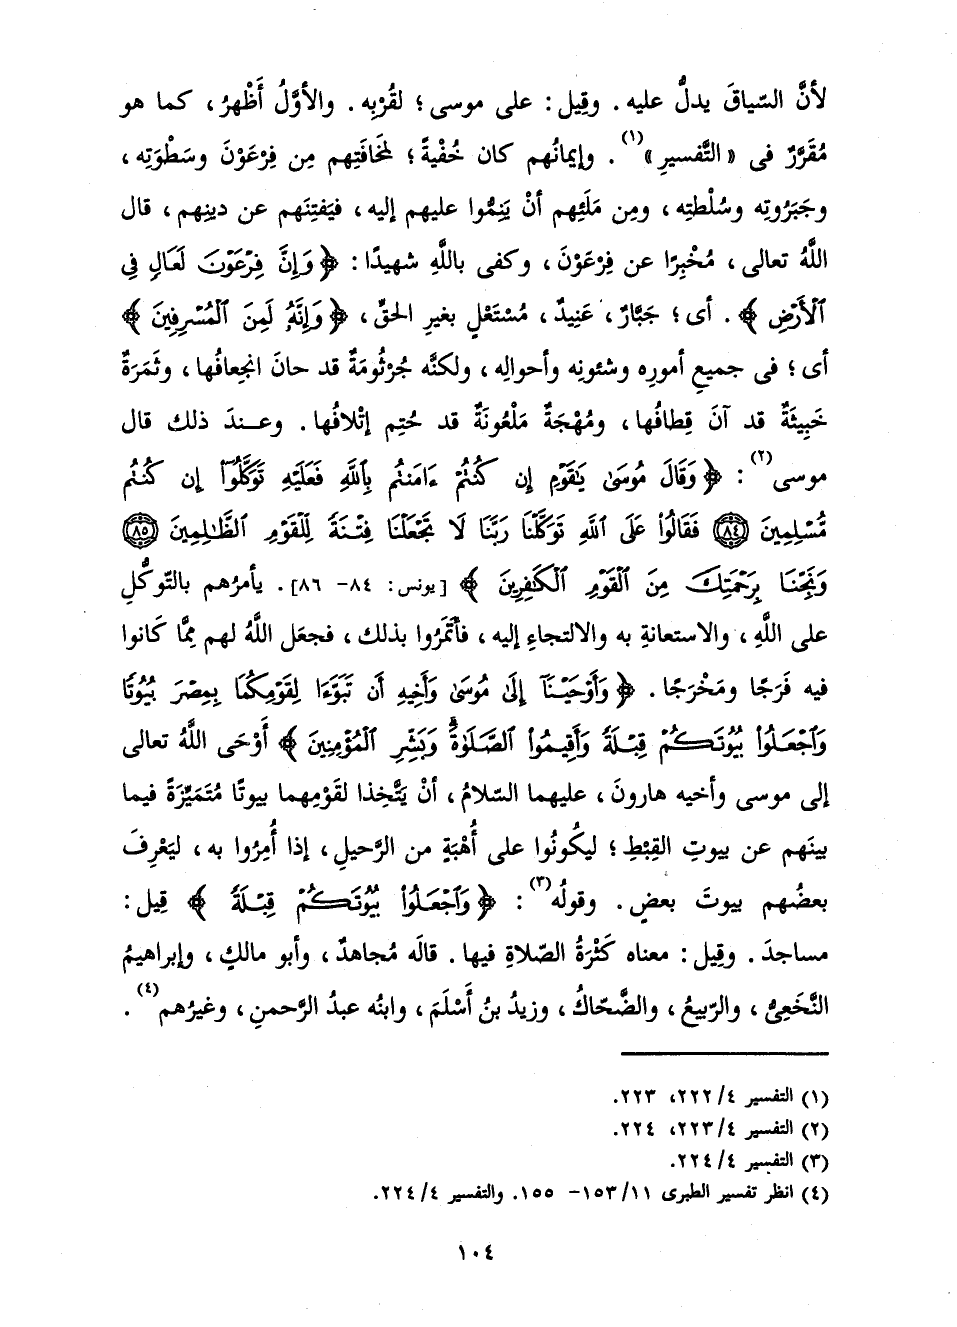 لأنَّ السِّياقَ يدلُّ عليه. وقِيل: على موسى؛ لقُرْبِه. والأوَّلُ أَظْهرُ، كما هو
مُقَرَّرٌ فى «التَّفسيرِ»(١). وإيمانُهم كان خُفْيةً؛ لمخَافَتِهم مِن فِرْعَوْنَ وسَطْوَتِه،
وجَبَرُوتِه وسُلْطتِه، ومِن مَلَئِهم أنْ يَنِمُّوا عليهم إليه، فيَفتِنَهم عن دينِهم، قال
اللَّهُ تعالى، مُخْبِرًا عن فِرْعَوْنَ، وكفى باللَّهِ شهيدًا: ﴿وَإِنَّ فِرْعَوْنَ لَعَالٍ فِى
ٱلْأَرْضِ﴾. أى؛ جَبَّارٌ، عَنِيدٌ، مُسْتَعْلٍ بغيرِ الحقِّ، ﴿وَإِنَّهُۥ لَمِنَ ٱلْمُسْرِفِينَ﴾
أى؛ فى جميعِ أمورِه وشئونِه وأحوالِه، ولكنَّه جُرْثُومَةٌ قد حانَ انجِعافُها، وثَمَرَةٌ
خَبِيثَةٌ قد آنَ قِطافُها، ومُهْجَةٌ مَلْعُونَةٌ قد حُتِم إتْلافُها. وعـنـدَ ذلك قال
موسى(٢): ﴿وَقَالَ مُوسَىٰ يَٰقَوْمِ إِن كُنتُمْ ءَامَنتُم بِٱللَّهِ فَعَلَيْهِ تَوَكَّلُوٓا۟ إِن كُنتُم
مُّسْلِمِينَ ﴿٨٤﴾ فَقَالُوا۟ عَلَى ٱللَّهِ تَوَكَّلْنَا رَبَّنَا لَا تَجْعَلْنَا فِتْنَةً لِّلْقَوْمِ ٱلظَّٰلِمِينَ ﴿٨٥﴾
وَنَجِّنَا بِرَحْمَتِكَ مِنَ ٱلْقَوْمِ ٱلْكَٰفِرِينَ﴾ [يونس: ٨٤- ٨٦]. يأمرُهم بالتَّوكُّلِ
على اللَّهِ، والاستعانةِ به والالتجاءِ إليه، فأتَمَرُوا بذلك، فجعَل اللَّهُ لهم مِمَّا كَانوا
فيه فَرَجًا ومَخْرَجًا. ﴿وَأَوْحَيْنَآ إِلَىٰ مُوسَىٰ وَأَخِيهِ أَن تَبَوَّءَا لِقَوْمِكُمَا بِمِصْرَ بُيُوتًا
وَٱجْعَلُوا۟ بُيُوتَكُمْ قِبْلَةً وَأَقِيمُوا۟ ٱلصَّلَوٰةَ ۗ وَبَشِّرِ ٱلْمُؤْمِنِينَ﴾ أَوْحَى اللَّهُ تعالى
إلى موسى وأخيه هارونَ، عليهما السّلامُ، أنْ يَتَّخِذا لقَوْمِهما بيوتًا مُتَمَيِّزَةً فيما
بينَهم عن بيوتِ القِبْطِ؛ ليكُونُوا على أُهْبَةٍ من الرَّحيلِ، إذا أُمِرُوا به، ليَعْرِفَ
بعضُهم بيوتَ بعضٍ. وقولُه(٣): ﴿وَٱجْعَلُوا۟ بُيُوتَكُمْ قِبْلَةً﴾ قِيل:
مساجدَ. وقِيل: معناه كَثْرَةُ الصّلاةِ فيها. قالَه مُجاهدٌ، وأبو مالكٍ، وإبراهيمُ
النَّخَعِىُّ، والرّبيعُ، والضَّحّاكُ، وزيدُ بنُ أَسْلَمَ، وابنُه عبدُ الرّحمنِ، وغيرُهم(٤).
(١) التفسير ٢٢٢/٤، ٢٢٣.
(٢) التفسير ٢٢٣/٤، ٢٢٤.
(٣) التفسير ٢٢٤/٤.
(٤) انظر تفسير الطبرى ١٥٣/١١- ١٥٥. والتفسير ٢٢٤/٤.
١٠٤